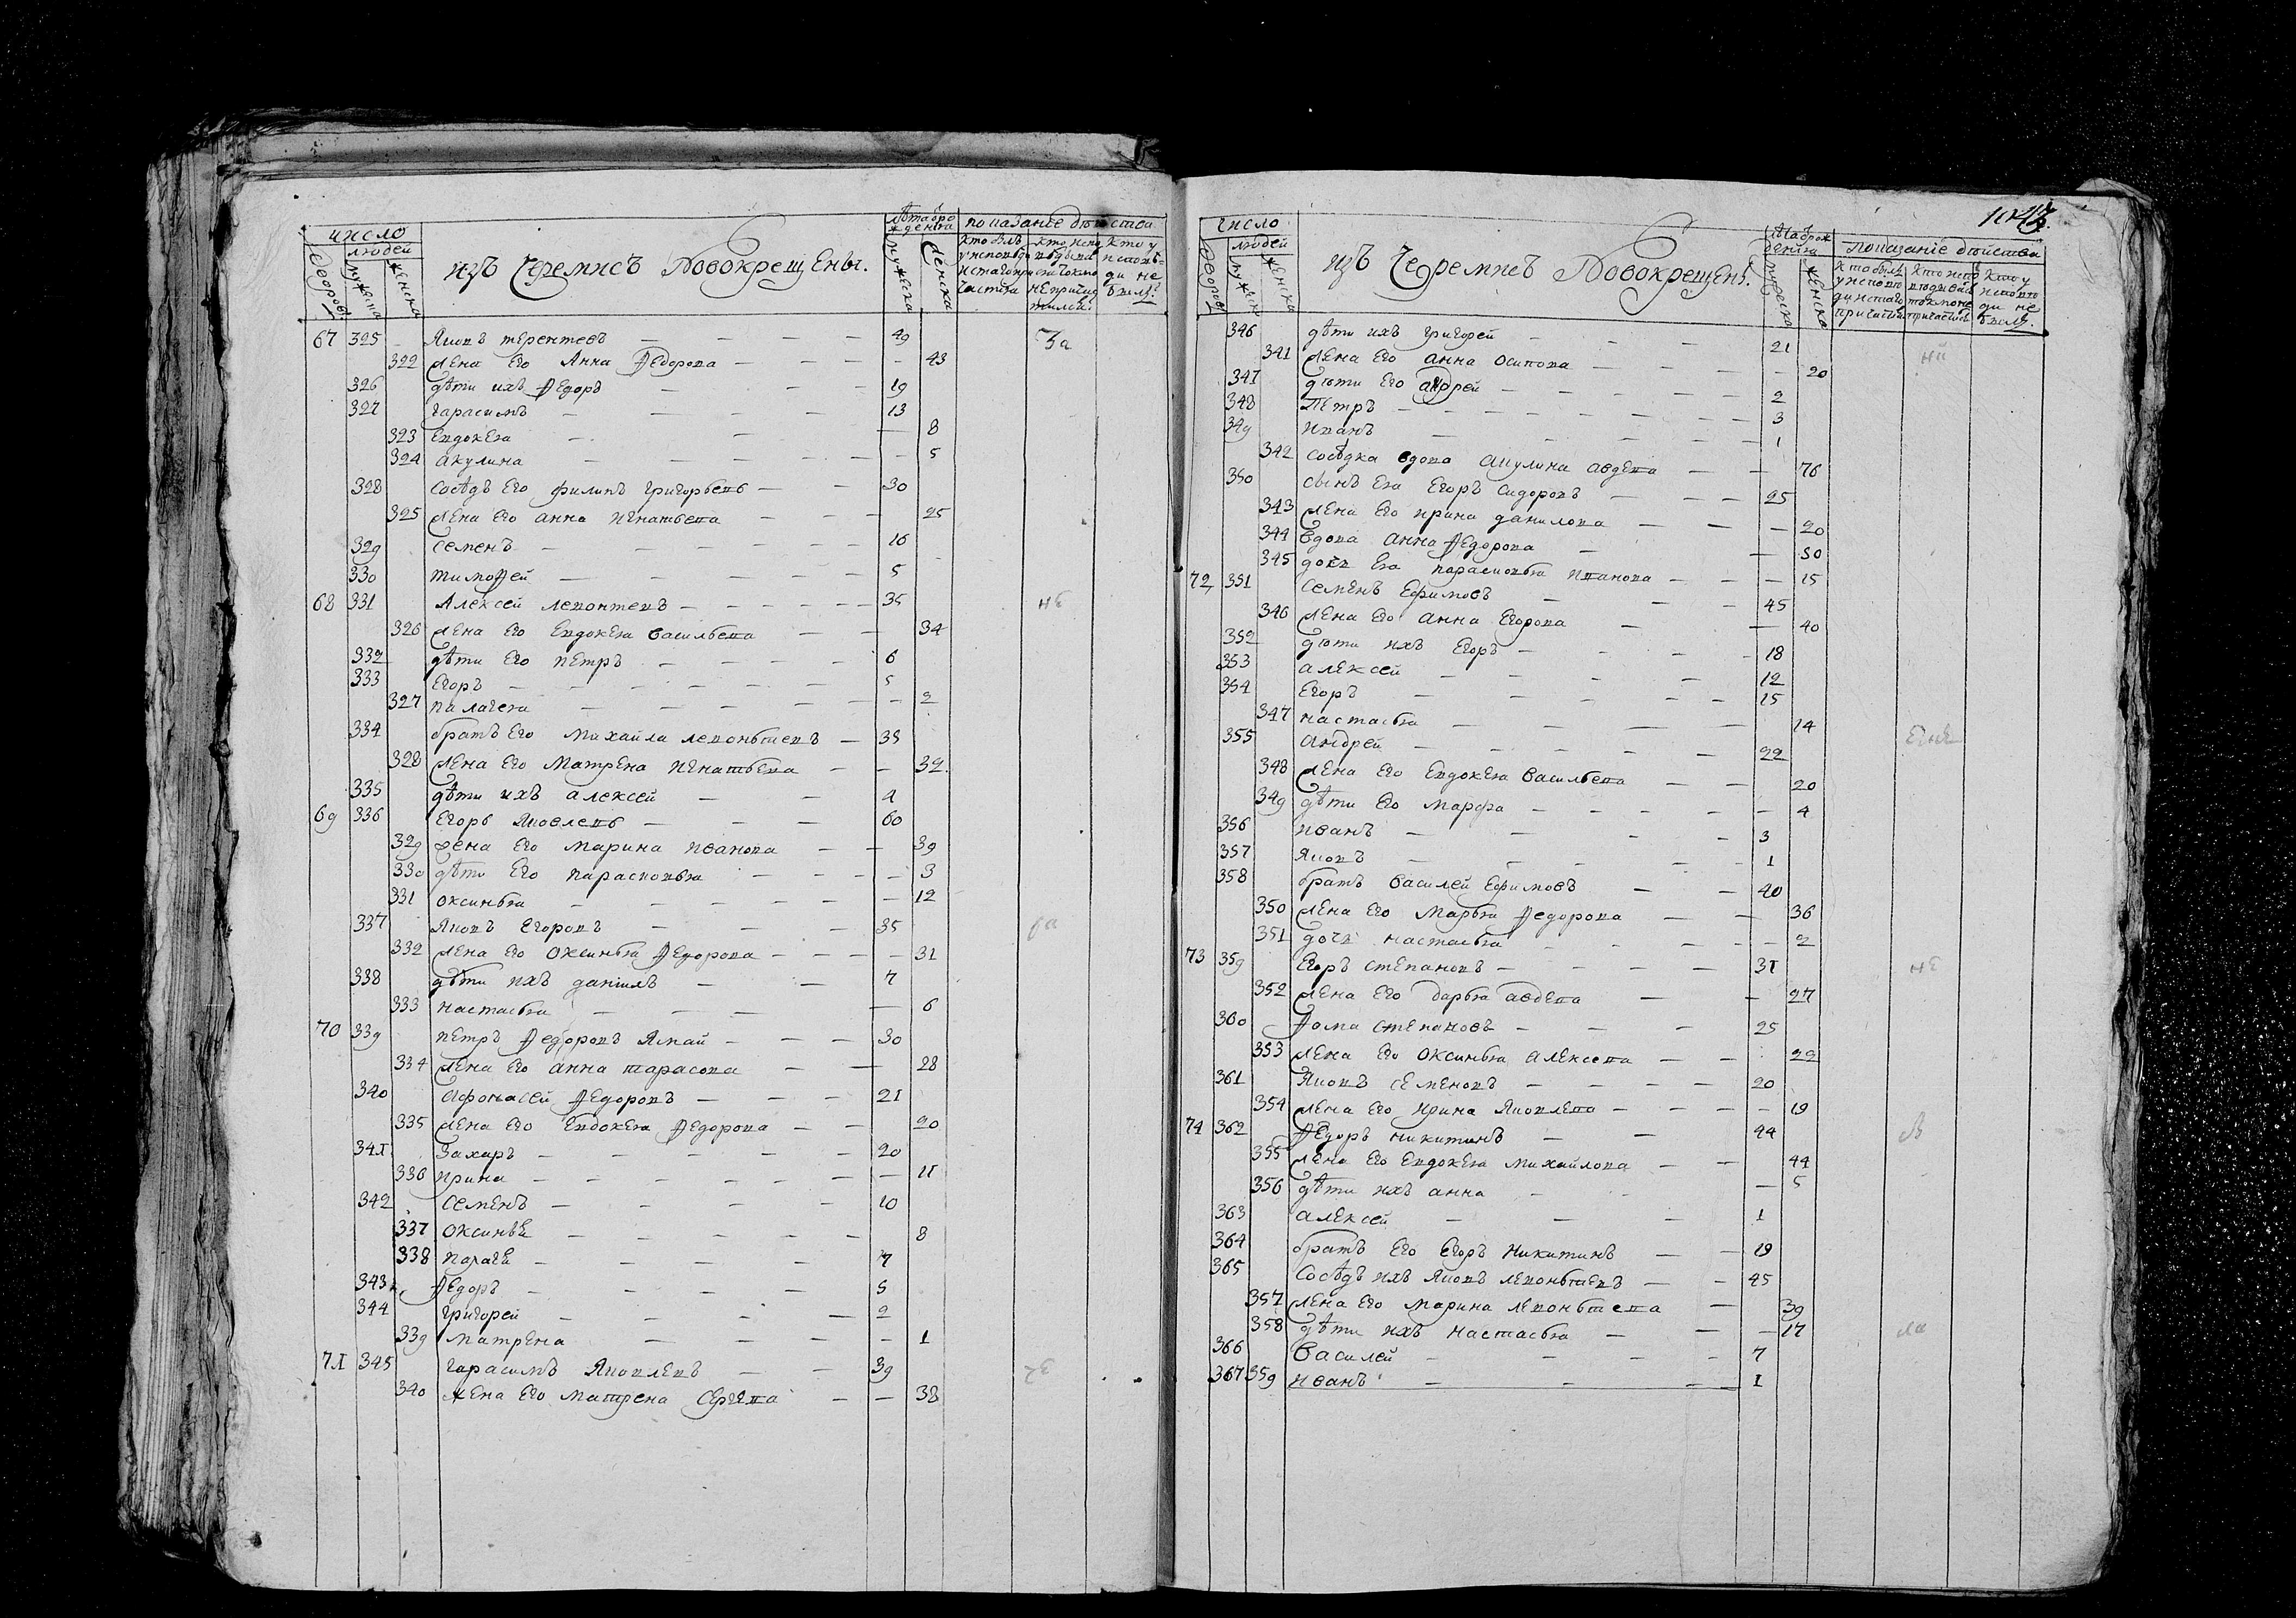 число
людей
дворовъ
мужеска
женска
изъ Черемисъ Новокрещены.
лѣта рождения
мужеска
женска
показанїе дѣйства
67 325 Яковъ терентьевъ — — — 49
322 жена Его Анна Ѳедорова — — 43
326 дѣти ихъ Ѳедоръ — — 19
327 гарасимъ — — — 13
323 Евдокѣя — — — 8
324 акулина — — — 5
328 сосѣдъ Его филипъ григорьевъ — — 30
325 жена Его анна игнатьева — — 25
329 семенъ — — — 16
330 тимоѳей — — — 5
68 331 Алексей леонтевъ — — — 35 не
326 жена Его Евдокѣя васильева — — 34
332 дѣти Его петръ — — — 6
333 Егоръ — — — 5
327 палагея — — — 2
334 братъ Его Михайла леонтьевъ — 33
328 жена Его Матрена игнатьева — — 32
335 дѣти ихъ алексей — — 4
69 336 Егоръ Яковлевъ — — — 60
329 жена Его марина иванова — — 39
330 дѣти Его парасковья — — — 3
331 оксинья — — — 12
337 Яковъ Егоровъ — — — 35
332 жена Его оксинья Ѳедорова — — — 31
338 дѣти ихъ данїилъ — — 7
333 настасья — — — 6
70 339 петръ Ѳедоровъ — — — 30
334 жена Его анна тарасова — — 28
340 афонасей Ѳедоровъ — — — 21
335 жена Его Евдокея Ѳедорова — — 20
341 Захаръ — — — 20
336 ирина — — — 11
342 семенъ — — — 10
337 оксинье — — — 8
338 полаге — — — 7
343 Ѳедоръ — — — 5
344 григорей — — — 2
339 матрена — — — 1
71 345 гарасимъ Яковлевъ — — 39
340 жена Его матрена Сергева — — 38
число
людей
дворовъ
мужеска
женска
изъ Черемисъ Новокрещены.
мужеска
женска
показанїе дѣйства
346 дѣти ихъ григорей — — — 21
341 жена Его анна осипова — — — 20
347 дѣти Его андрей — — — 2
348 Петръ — — — 3
349 иванъ — — — 1
342 сосѣдка вдова акулина авдева — — 76
350 сынъ Ея Егоръ сидоровъ — — — 25
343 жена Его ирина данилова — — — 20
344 вдова анна Ѳедорова — — 50
345 дочь Ея парасковья иванова — — — 15
72 351 семенъ Ефимовъ — — — 45
346 жена Его анна Егорова — — 40
352 дѣти ихъ Егоръ — — — 18
353 алексей — — — 12
354 Егоръ — — — 15
347 настасья — — — 14
355 андрей — — — 22
348 жена Его Евдокея васильева — — 20
349 дѣти Его марфа — — — 4
356 иванъ — — — 3
357 Яковъ — — — 1
358 братъ василей Ефимовъ — — 40
350 жена Его марья Ѳедорова — — 36
351 дочь настасья — — — 2
73 359 Егоръ степановъ — — — 31 не
352 жена Его дарья авдева — — 27
360 Ѳома степановъ — — — 25
353 жена Его оксинья алексева — — 22
361 Яковъ семеновъ — — — 20
354 жена Его ирина Яковлева — — — 19
74 362 Ѳедоръ никитинъ — — 44
355 жена Его Евдокея михайлова — — 44
356 дѣти ихъ анна — — 5
363 алексей — — — 1
364 братъ Его Егоръ никитинъ — — 19
365 сосѣдъ ихъ Яковъ леонтьевъ — — 45
357 жена Его марина леонтьева — 39
358 дѣти ихъ настасья — — 17
366 василей — — — 7
367 359 иванъ — — — 1